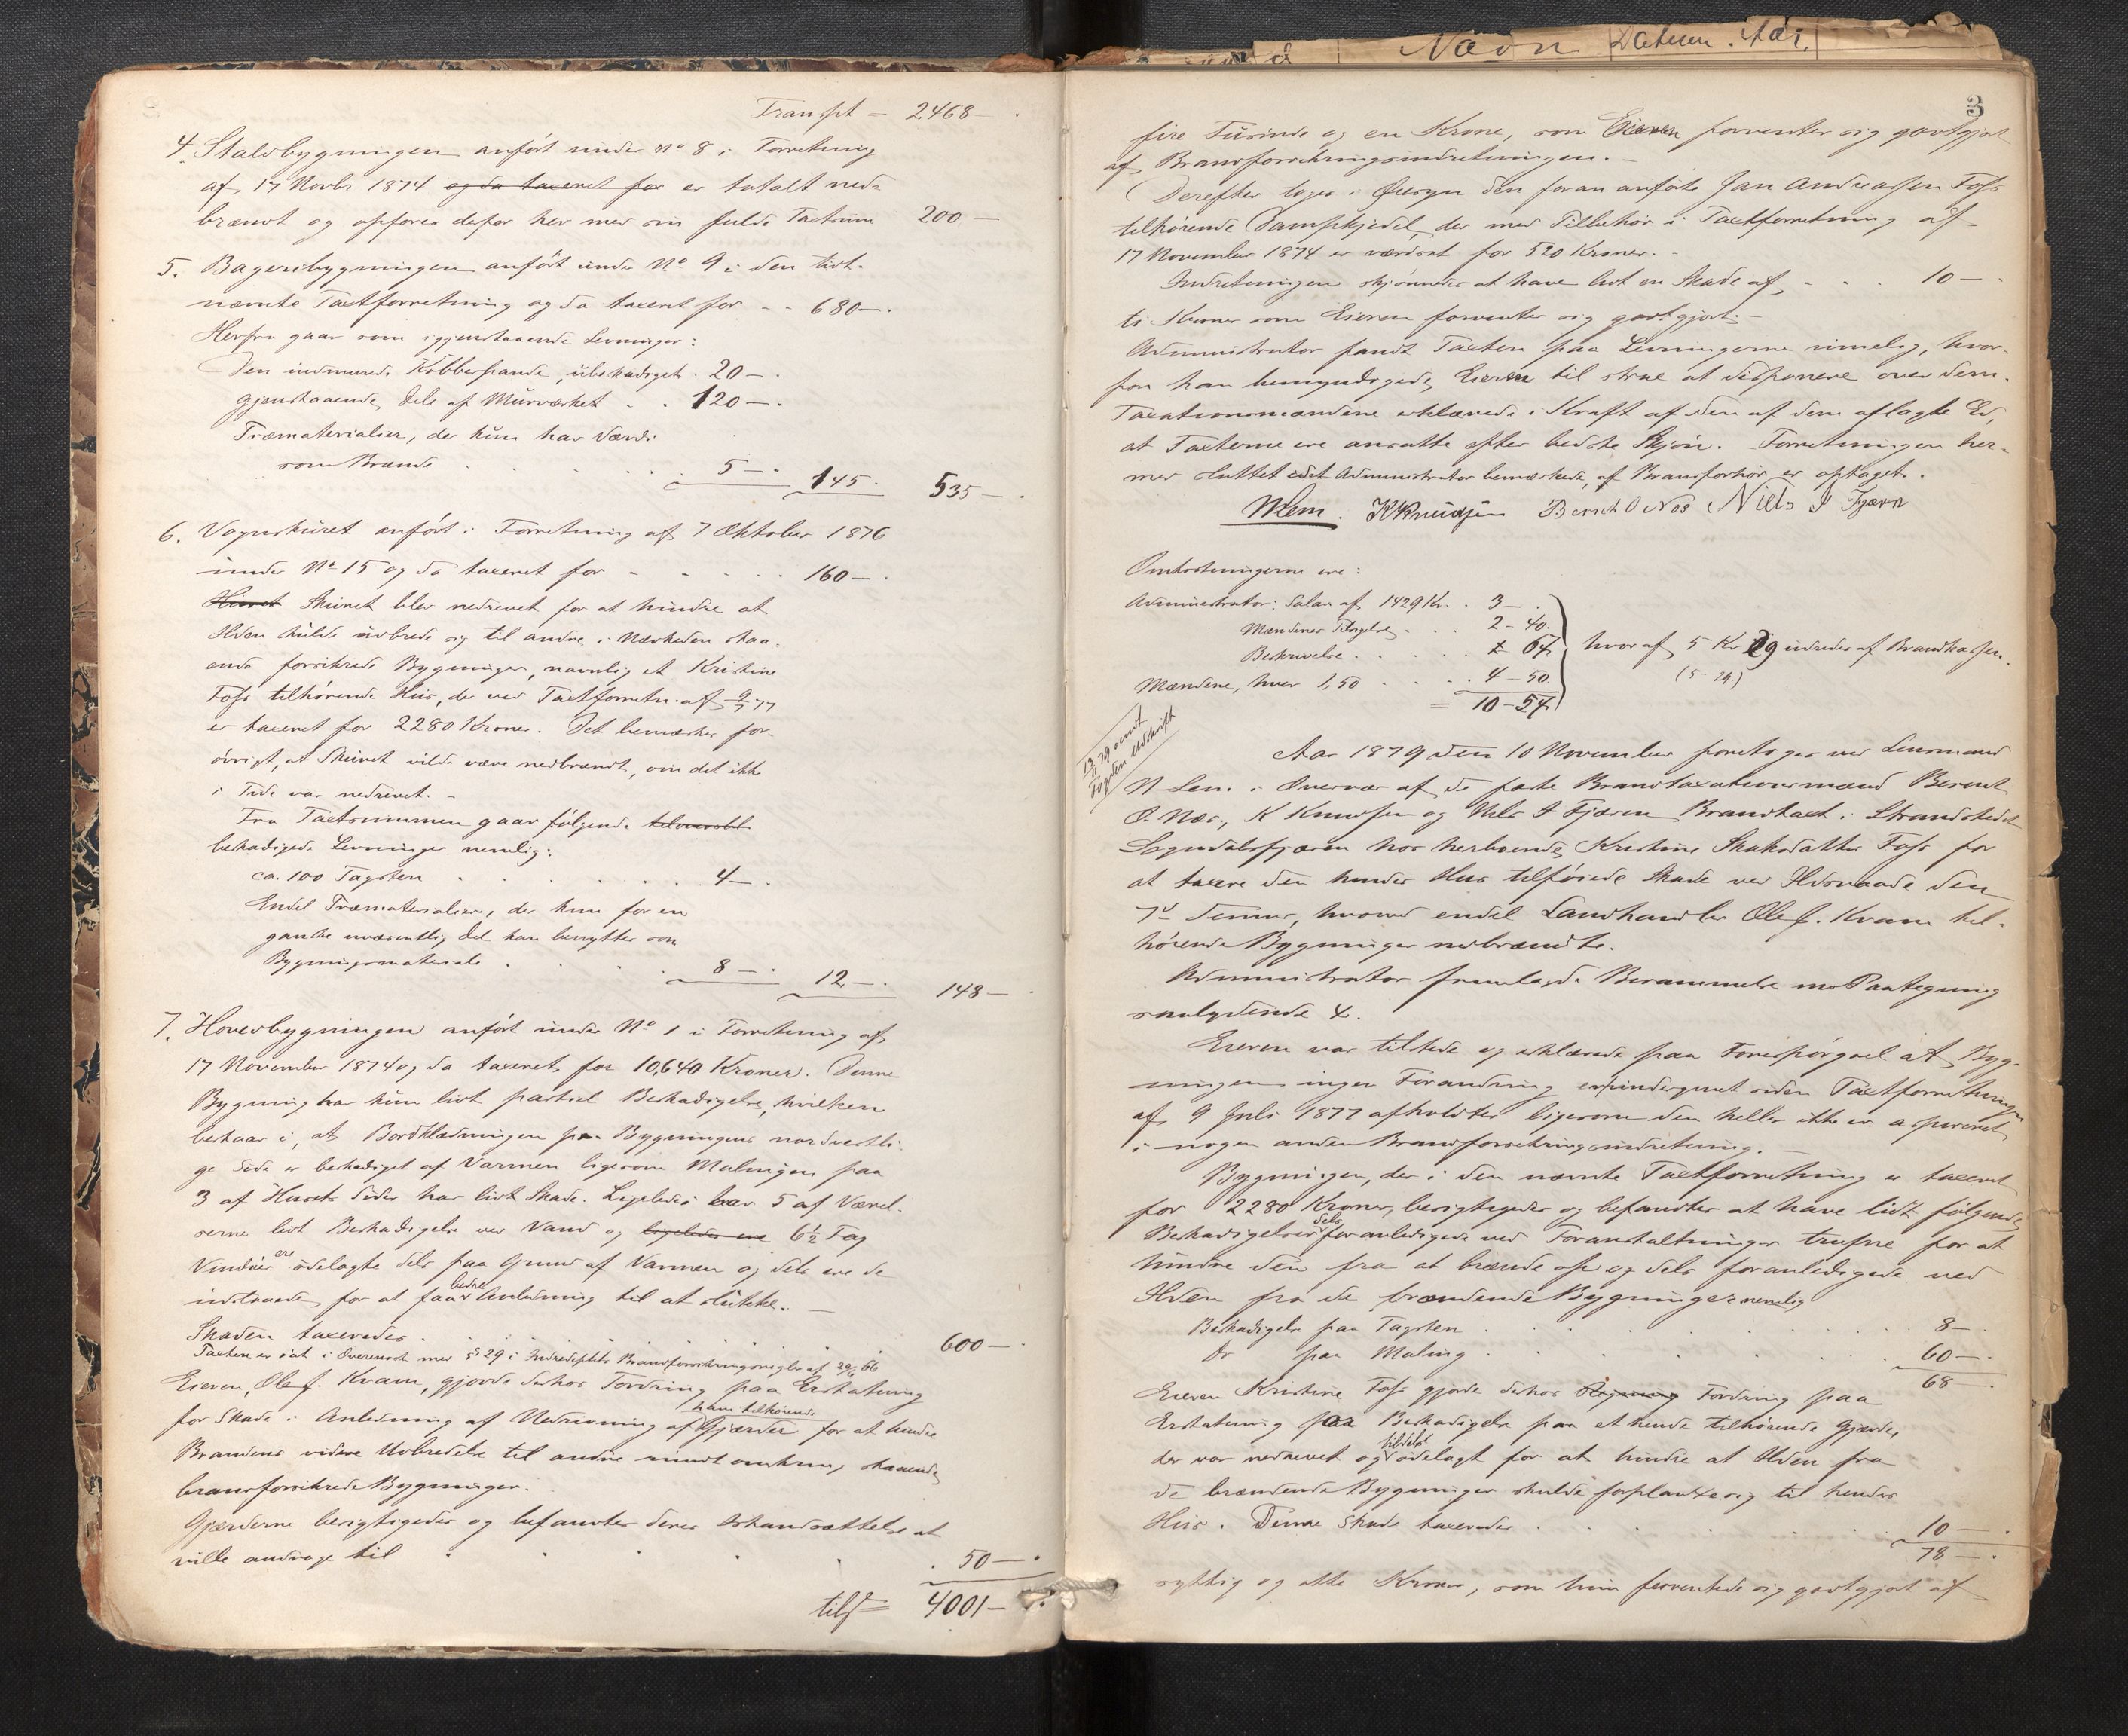 Transpt — 2468 —
4. Staldbygningen anført under No 8 i Forretning
af 17 Novbr 1874 og da taxeret for er totalt ned-
brændt og opføres derfor her med sin fulde Taxtsum 200 —
5. Bageribygningen anført under No 9 i den tidt-
nævnte Taxtforretning og da taxeret for - - 680 —
Herfra gaar som igjenstaaende Levninger:
Den indmurede Kobberpande, ubeskadiget 20 —
gjenstaaende Dele af Murværket - . 120 —
Træmaterialier, der kun har Værdi
som Brænde . . . . 5 — 145 535 —
6. Vognskuret anført i Forretning af 7 Oktober 1876
under No 15 og da taxeret for - - - 160 —
Huset Skuret blev nedrevet for at hindre at
Ilden skulde udbrede sig til andre i Nærheden staa-
ende forsikrede Bygninger, navnlig et Kristine
Foss tilhørende Hus, der ved Taxtforretn. af 9/7 77
er taxeret for 2280 Kroner. Det bemærkes for-
øvrigt, at Skuret vilde være nedbrændt, om det ikke
i Tide var nedrevet. -
Fra Taxtsummen gaar følgende
beskadigede Levninger nemlig:
ca. 100 Tagsten . . . . 4 —
Endel Træmaterialier, der kun for en
ganske uvæsentlig Del kan benyttes som
Bygningsmateriale . . . 8 — 12 — 148 —
7. Hovedbygningen anført under No 1 i Forretning af
17 November 1874 og da taxeret for 10,640 Kroner. Denne
Bygning har kun lidt partiel Beskadigelse, hvilken
bestaar i, at Bordklædningen paa Bygningens nordvestli-
ge Side er beskadiget af Varmen ligesom Malingen paa
3 af Husets Sider har lidt Skade. Ligeledes har 5 af Værel-
serne lidt Beskadigelse ved Vand og ligeledes ere 6½ Fag
Vinduer ere ødelagte dels paa Grund af Varmen og dels ere de
indslaaede for at faa bedre Anledning til at slukke. —
Skaden taxeredes . . . . . 600 —
Taxten er sat i Overensst med § 29 i Indredeptets Brandforsikringsregler af 29/6 66
Eieren, Ole J. Kvam, gjorde derhos Fordring paa Erstatning
for Skade i Anledning af Nedrivning af ham tilhørende Gjærder for at hindre
Brandens videre Udbredelse til andre rundt omkring staaende
brandforsikrede Bygninger.
Gjærderne besigtigedes og befandtes deres Istandsættelse at
ville andrage til . . . . 50 —
tils 4001 —
Nævn Datum. Aar.
3
fire Tusinde og en Krone, som Eieren forventer sig godtgjort
af Brandforsikringsindretningen. —
Derefter toges i Øiesyn den foran anførte Jan Andreassen Foss
tilhørende Dampkjedel, der med Tilbehør i Taxtforretning af
17 November 1874 er værdsat for 520 Kroner. -
Indretningen skjønnedes at have lidt en Skade af - . . 10 —
ti Kroner som Eieren forventer sig godtgjort. —
Administrator fandt Taxten paa Levningerne rimelig, hvor-
for han bemyndigede Eieren til strax at disponere over dem.
Taxationsmændene erklærede i Kraft af den af dem aflagte Ed,
at Taxterne ere ansatte efter bedste Skjøn. Forretningen her-
med sluttet idet Administrator bemærkede, at Brandforhør er optaget.
NLem. KKnudsen Bernt O Næs Niels I Fjæren
Omkostningerne ere:
Administrator: Salar af 1429 Kr. . 3 —
Mændenes Tilsigelse . . . 2 - 40
Beskrivelse . . . . 64
Mændene, hver 1,50 . . . 4 - 50
= 10 - 54
hvoraf 5 Kr 29 udredes af Brandkassen.
(5 - 29)
13/11 79 sendt
Fogden Udskrift
Aar 1879 den 10 November foretoges ved Lensmand
N Lem i Overvær af de faste Brandtaxationsmænd Bernt
O. Næs, K Knudsen og Niels I Fjæren Brandtaxt i Strandstedet
Sogndalsfjæren hos herboende Kristine Skaksdatter Foss for
at taxere den hendes Hus tilføiede Skade ved Ildsvaade den
7d dennes, hvorved endel Landhandler Ole J. Kvam til-
hørende Bygninger nedbrændte.
Administrator fremlagde Berammelse med Paategning
saalydende X.
Eieren var tilstede og erklærede paa Forespørgsel at Byg-
ningen ingen Forandring er undergaaet siden Taxtforretningen
af 9 Juli 1877 afholdtes ligesom den heller ikke er assureret
i nogen anden Brandforsikringsindretning. —
Bygningen, der i den nævnte Taxtforretning er taxeret
for 2280 Kroner, besigtigedes og befandtes at have lidt følgende
Beskadigelser dels foranledigede ved Foranstaltninger trufne for at
hindre den fra at brænde op og dels foranledigede ved
Ilden fra de brændende Bygninger nemlig
Beskadigelse paa Tagsten . . . . 8 —
Do paa Maling . . . . 60 —
68 —
Eieren Kristine Foss gjorde derhos Fordring paa
Erstatning paa Beskadigelse paa et hende tilhørende Gjærde,
der var nedrevet og tildels ødelagt for at hindre at Ilden fra
de brændende Bygninger skulde forplante sig til hendes
Hus. Denne Skade taxeredes . . . . 10 —
78 —
sytti og otte Kroner, som hun forventede sig godtgjort af